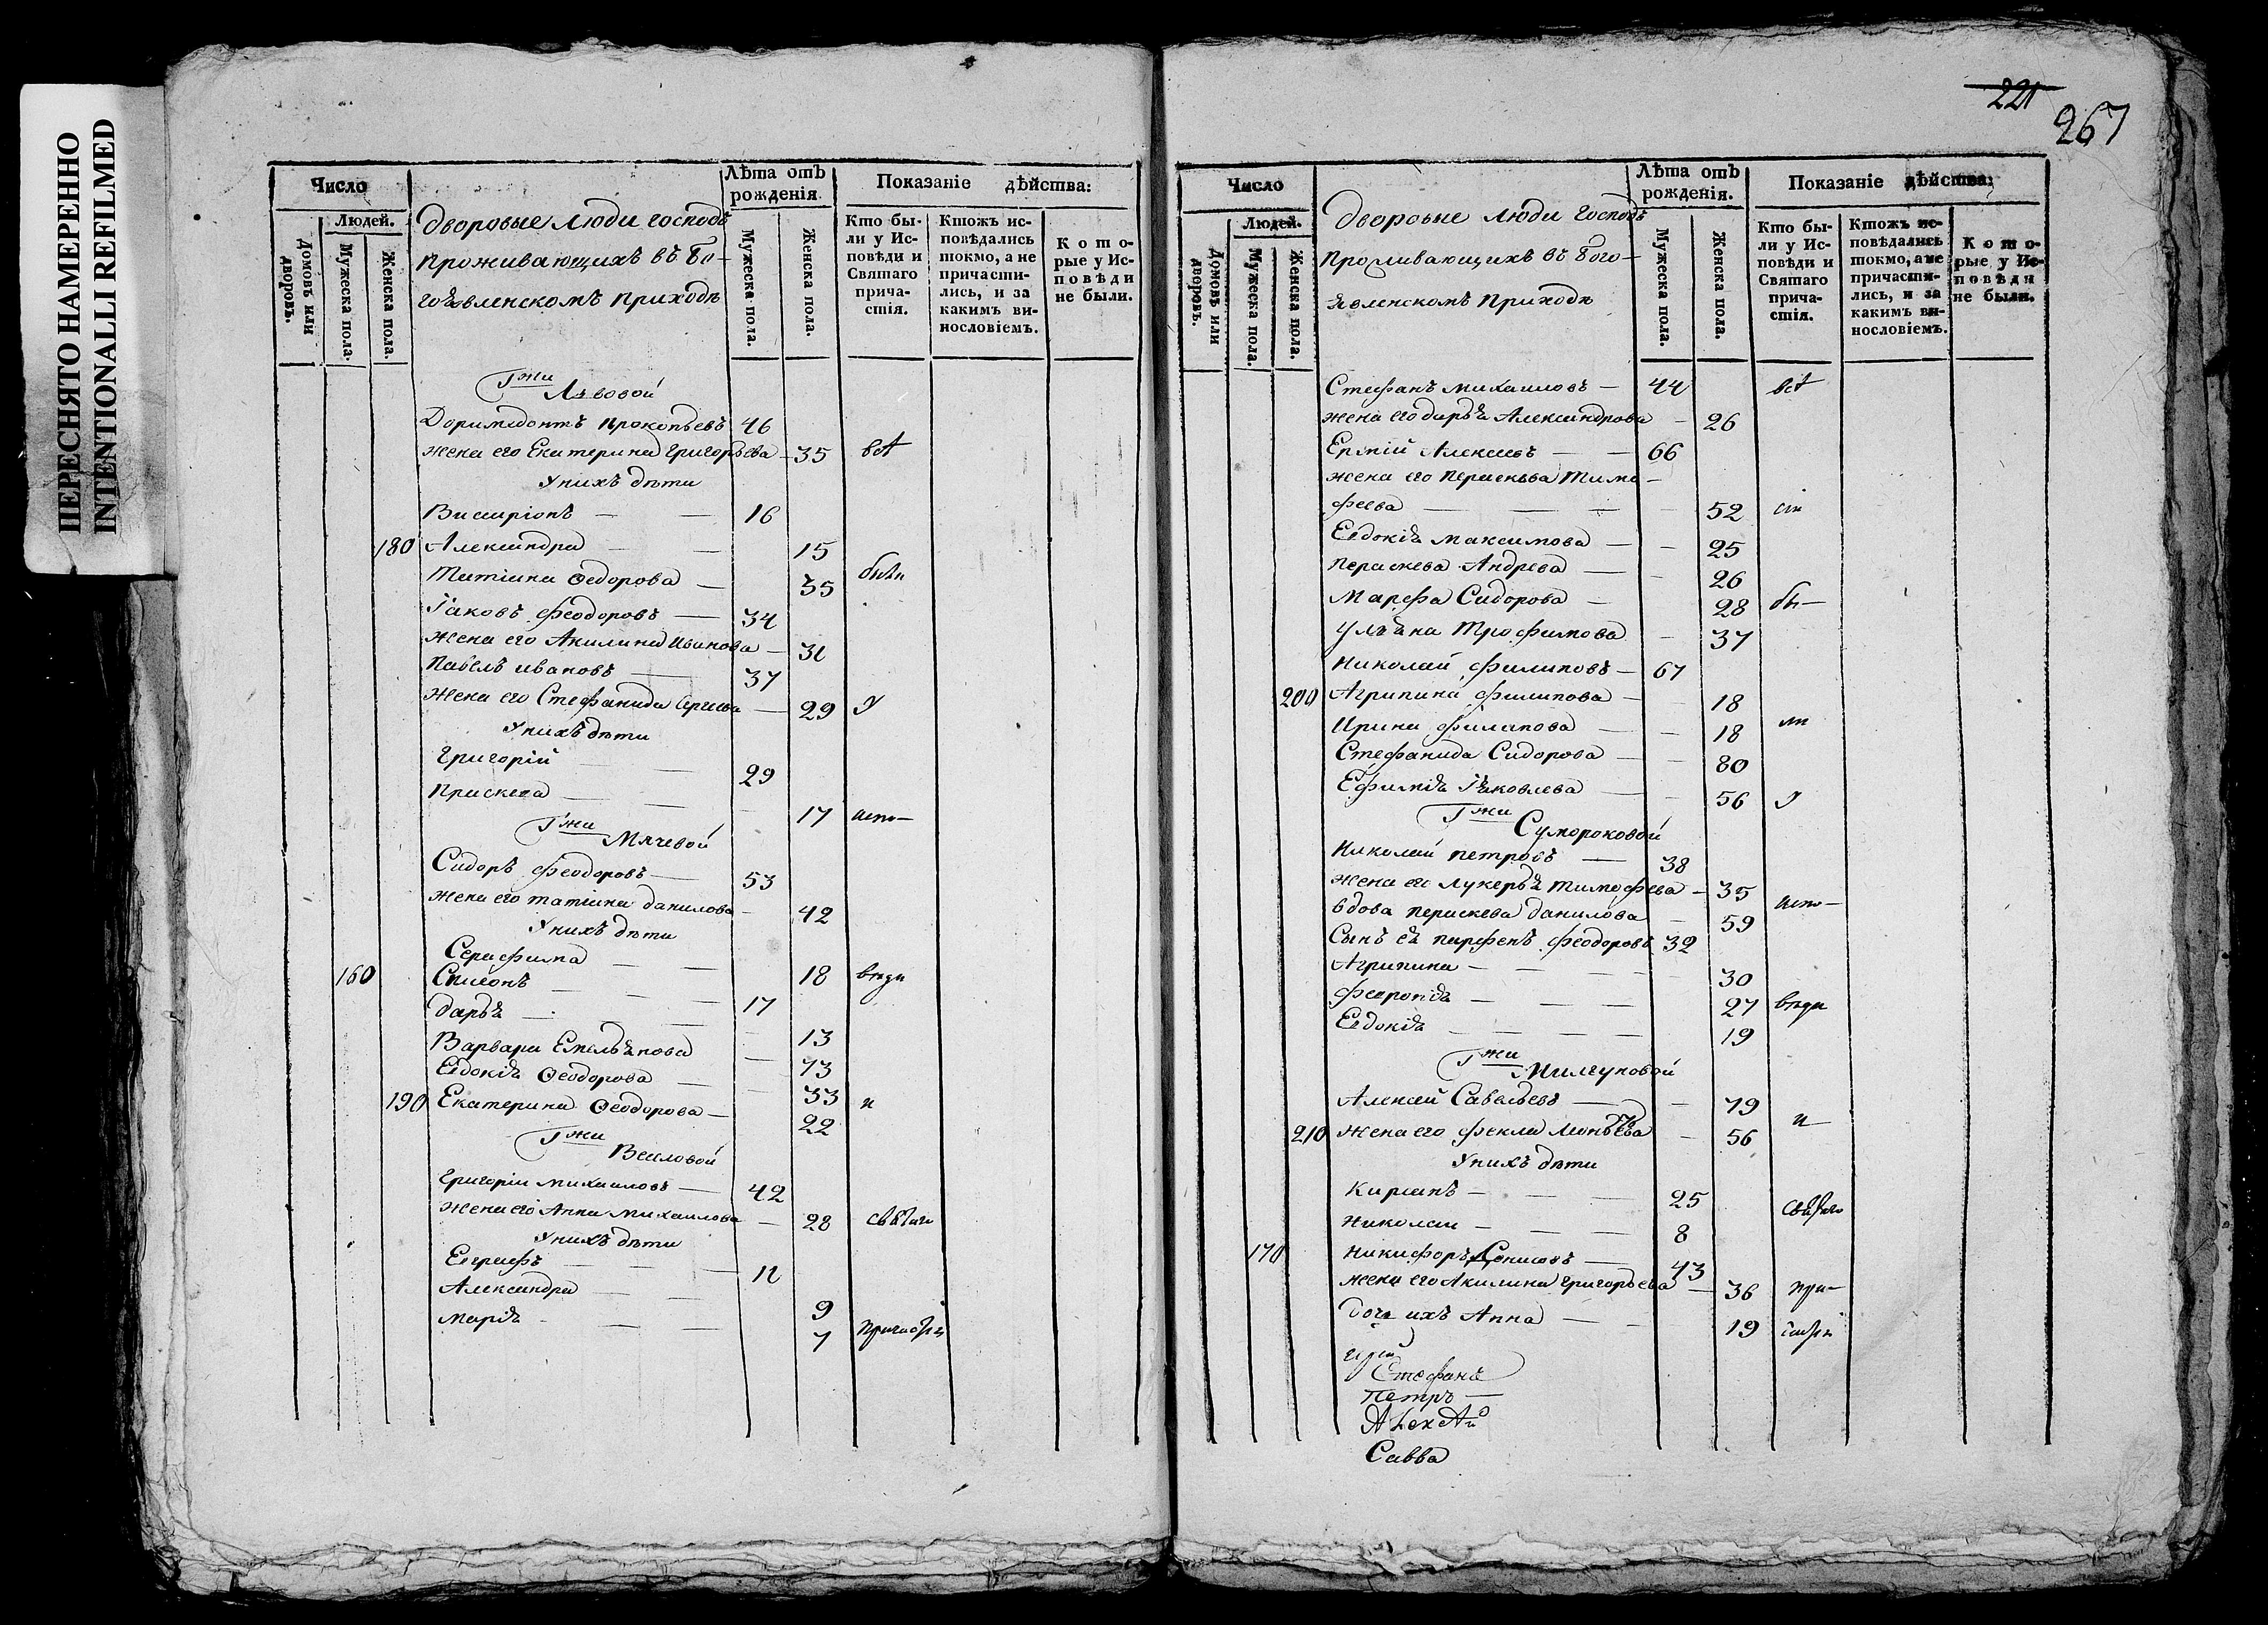 ПЕРЕСНЯТО НАМЕРЕННО
INTENTIONALLI REFILMED
Число
Людей.
Домовъ или дворовъ.
Мужеска пола.
Женска пола.
Дворовые люди господъ
проживающихъ въ Бо-
гоявленскомъ приходѣ
Лѣта отъ
рожденія.
Мужеска пола.
Женска пола.
Показаніе дѣйства:
Кто бы-
ли у Ис-
повѣди и
Святаго
прича-
стія.
Ктожъ ис-
повѣдались
токмо, а не
причасти-
лись, и за
какимъ ви-
нословіемъ.
Кото-
рые у Ис-
повѣди
не были.
Гжи
Львовой
Доримедонтъ Прокопьевъ 46
жена его Екатерина Григорьева 35 всѣ
У нихъ дѣти
Висаріонъ 16
180 Александра 15
Татіана Ѳедорова 35 были
Іаковъ Феодоровъ 34
жена его Акилина Иванова 31
Павелъ Ивановъ 37
жена его Стефанида Сергиева 29 у
У нихъ дѣти
Григорій 29
Прискева 17 испо-
Гжи
Мячевой
Сидоръ Феодоровъ 53
жена его Татіана Данилова 42
У нихъ дѣти
Серафима 18 вѣди
160 Симеонъ 17
Дарья 13
Варвара Емельянова 73
Евдокія Ѳеодорова 33 и
190 Екатерина Ѳеодорова 22
Гжи
Григорій Михаиловъ 42
жена его Анна Михаилова 28 святаго
У нихъ дѣти
Евграфъ 11
Александра 9
Марія 7
221
267
Число
Людей.
Домовъ или дворовъ.
Мужеска пола.
Женска пола.
Дворовые люди господъ
проживающихъ въ Бого-
явленскомъ приходѣ
Лѣта отъ
рожденія.
Мужеска пола.
Женска пола.
Показаніе дѣйства:
Кто бы-
ли у Ис-
повѣди и
Святаго
прича-
стія.
Ктожъ ис-
повѣдались
токмо, а не
причасти-
лись, и за
какимъ ви-
нословіемъ.
Кото-
рые у Ис-
повѣди
не были.
Стефанъ Михаиловъ 44 всѣ
жена его Дарья Александрова 26
Ермій Алексеевъ 66
жена его Параскева Тимо-
феева 52 сіи
Евдокія Максимова 25
Параскева Андреева 26
Марфа Сидорова 28 бы-
Ульяна Трофимова 37
Николай Филиповъ 67
200 Агрипина Филипова 18
Ирина Филипова 18 ли
Стефанида Сидорова 80
Ефимія Іаковлева 56 у
Гжи
Сумороковой
Николай Петровъ 38
жена его Лукерья Тимофеева 35 испо-
вдова Параскева Данилова 59
Сынъ ея Парфенъ Феодоровъ 32
Агрипина 30
Февронія 27 вѣди
Евдокія 19
Гжи
Алексей Савельевъ 79 и
210 жена его Фекла Леонтьева 56
У нихъ дѣти
Киріанъ 25 святаго
Николаи 8
170 Никифоръ Денисовъ 43
жена его Акилина Григорьева 36 при-
дочь ихъ Анна 19
Стефана
Петръ
Савва